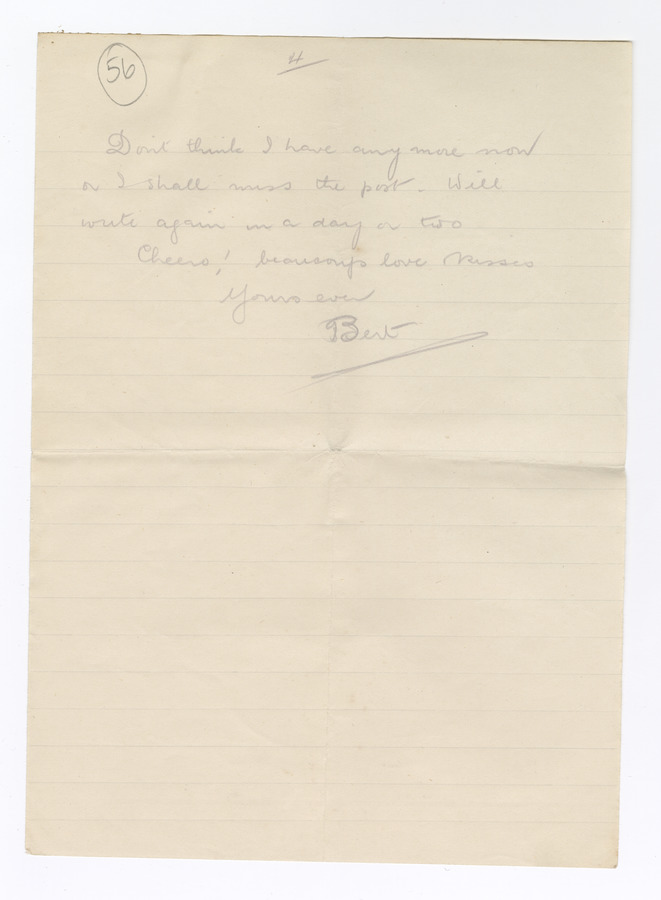 56
4
Dont think I have any more now
or I shall miss the post. Will
write again in a day or two
Cheero! beaucoups love kisses
Yours ever
Bert